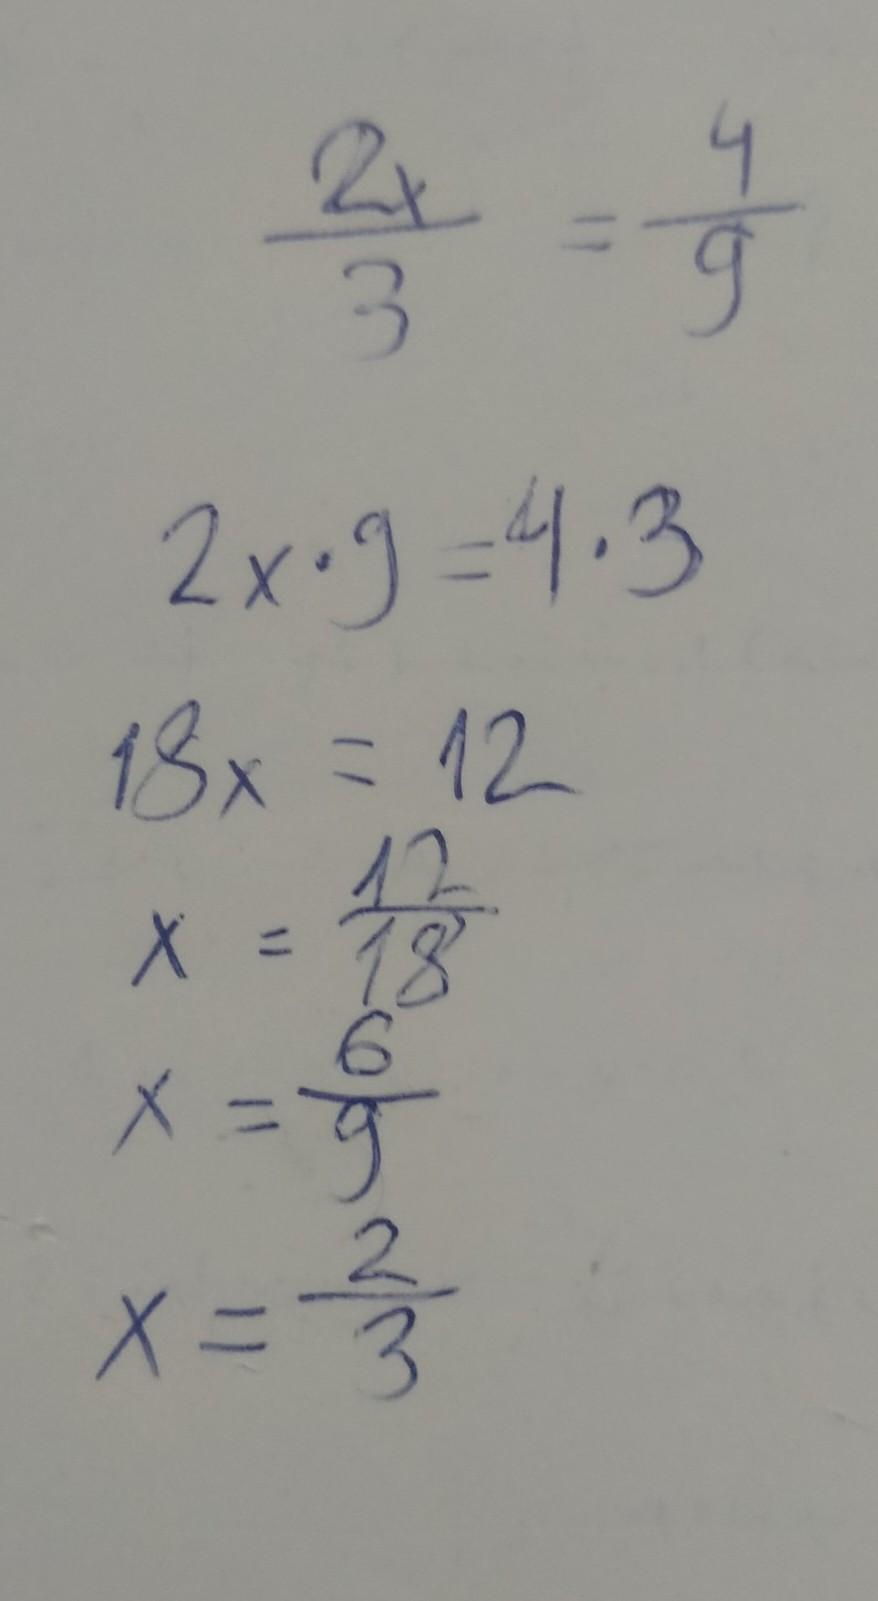 2x/3 = 4/9
2x·9 = 4·3
18x = 12
x = 12/18
x = 6/9
x = 2/3